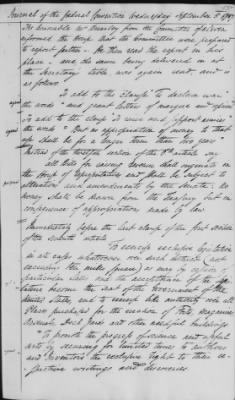 Journal of the federal Convention Wednesday September 5 1787
The honorable Mr Brearley from the Committee of eleven
informed the House that the Committee were prepared
to report farther. He then read the report in his
place. and the same being delivered in at
the Secretary's table was again read, and is
as follows.
To add to the clause "to declare war"
the words "and grant letters of marque and reprisal"
To add to the clause "to raise and support armies"
the words "But no appropriation of money to that
use shall be for a longer term than two years"
agreed
All Bills for raising revenue shall originate in
the House of representatives and shall be subject to
alterations and amendments by the Senate. No
money shall be drawn from the Treasury but in
consequence of appropriations made by law.
Immediately before the last clause of the first section
of the seventh article
To exercise exclusive legislation
in all cases whatsoever over such district (not
exceeding ten miles square) as may by cession of
particular States and the acceptance of the
Legislature become the seat of the Government of the
United States, and to exercise like authority over all
Places purchased for the erection of Forts, Magazines
Arsenals, Dock Yards and other needful buildings
To promote the progress of science and useful
arts by securing for limited times to authors
and Inventors the exclusive right to their
respective writings and discoveries.